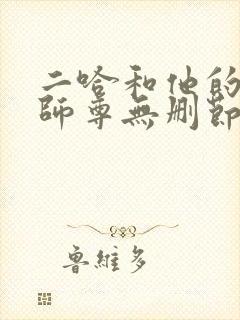 二哈和他的
師尊無刪節
魯維多